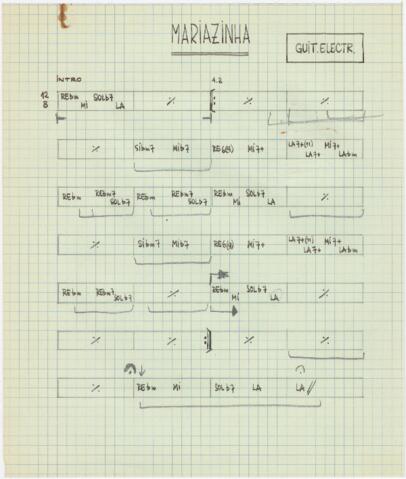 MARIAZINHA
GUIT. ELECTR.
INTRO
1.2
12
8
REbm SOLb7
MI LA
٪ ٪ ٪
٪ SIbm7 MIb7 RE6(9) MI7+ LA7+(11) MI7+
LA7+ LAbm
REbm REbm7 REbm REbm7 REbm SOLb7 ٪
SOLb7 SOLb7 MI LA
٪ SIbm7 MIb7 RE6(9) MI7+ LA7+(11) MI7+
LA7+ LAbm
REbm REbm7 ٪ REbm SOLb7 ٪
SOLb7 MI LA
٪ ٪ ٪ ٪
٪ REbm MI SOLb7 LA LA //